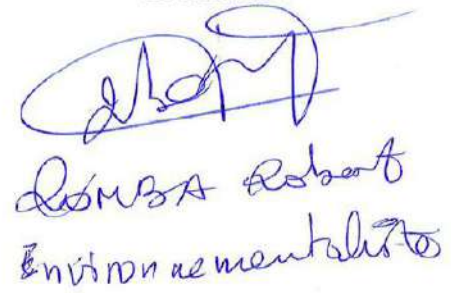 ROMBA Robert
Environnementaliste